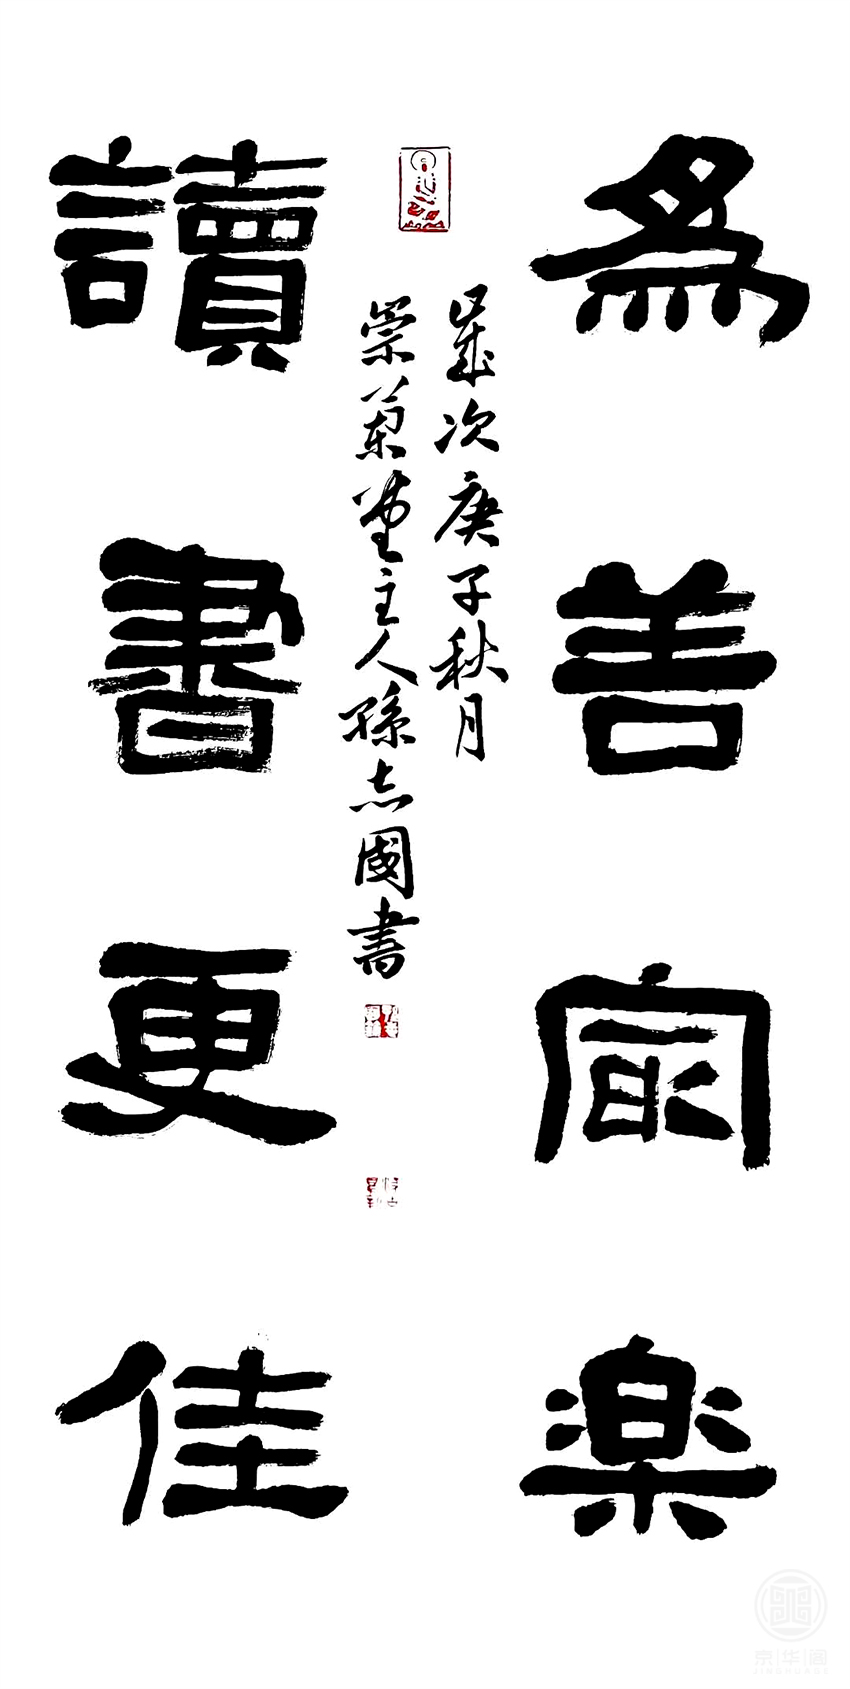 為善最樂
讀書更佳
歲次庚子秋月
崇蘭堂主人孫志國書
京华阁
JINGHUAGE